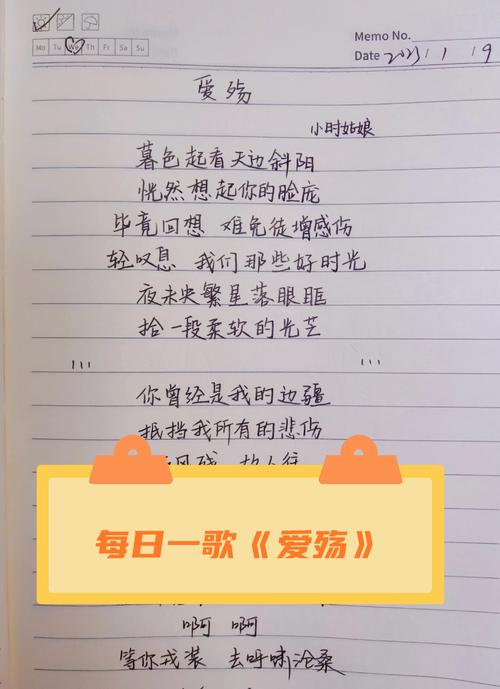 Mo Tu We Th Fr Sa Su
Memo No.
Date 2023 / 1 / 9
爱殇
小时姑娘
暮色起看天边斜阳
恍然想起你的脸庞
毕竟回想 难免徒增感伤
轻叹息 我们那些好时光
夜未央繁星落眼眶
拾一段柔软的光芒
你曾经是我的边疆
抵挡我所有的悲伤
风残 故人往
每日一歌《爱殇》
啊 啊
等你戎装 去呼啸沧桑